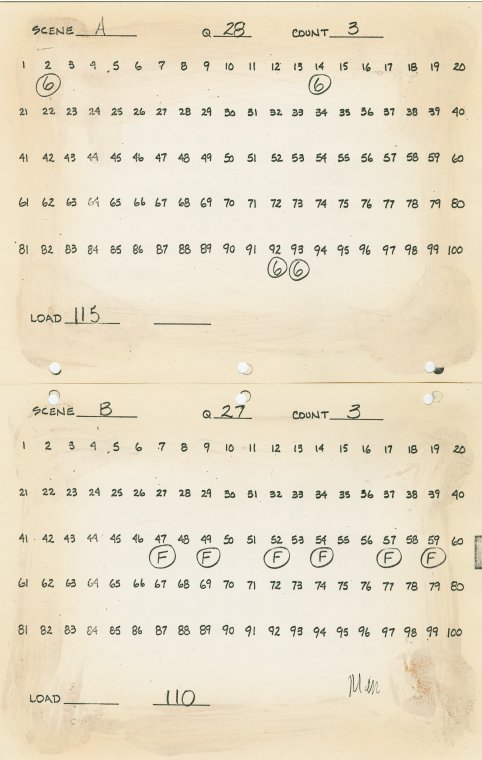 SCENE A Q 28 COUNT 3
1 2 3 4 5 6 7 8 9 10 11 12 13 14 15 16 17 18 19 20
6 6
21 22 23 24 25 26 27 28 29 30 31 32 33 34 35 36 37 38 39 40
41 42 43 44 45 46 47 48 49 50 51 52 53 54 55 56 57 58 59 60
61 62 63 64 65 66 67 68 69 70 71 72 73 74 75 76 77 78 79 80
81 82 83 84 85 86 87 88 89 90 91 92 93 94 95 96 97 98 99 100
6 6
LOAD 115
SCENE B Q 27 COUNT 3
1 2 3 4 5 6 7 8 9 10 11 12 13 14 15 16 17 18 19 20
21 22 23 24 25 26 27 28 29 30 31 32 33 34 35 36 37 38 39 40
41 42 43 44 45 46 47 48 49 50 51 52 53 54 55 56 57 58 59 60
F F F F F F
61 62 63 64 65 66 67 68 69 70 71 72 73 74 75 76 77 78 79 80
81 82 83 84 85 86 87 88 89 90 91 92 93 94 95 96 97 98 99 100
LOAD 110